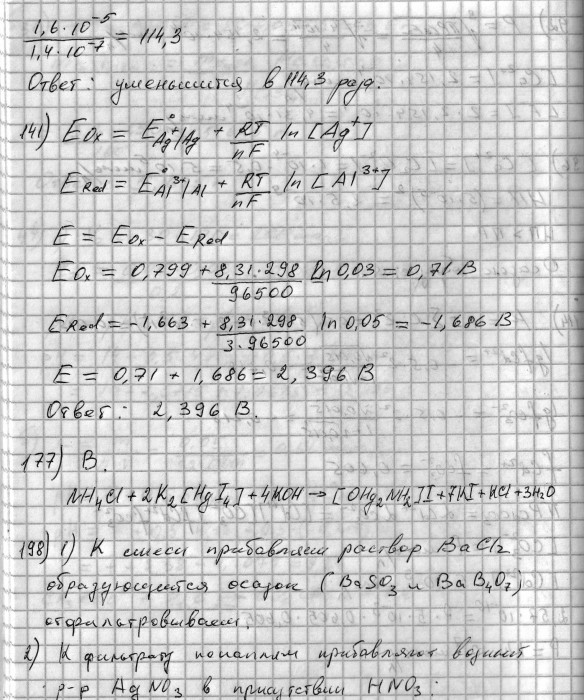 1,6·10⁻⁵ / 1,4·10⁻⁷ = 114,3
Ответ: уменьшится в 114,3 раза.
141) Eox = E°Ag⁺/Ag + RT/nF ln [Ag⁺]
ERed = E°Al³⁺/Al + RT/nF ln [Al³⁺]
E = Eox − ERed
Eox = 0,799 + 8,31·298/96500 ln 0,03 = 0,71 В
ERed = −1,663 + 8,31·298/3·96500 ln 0,05 = −1,686 В
E = 0,71 + 1,686 = 2,396 В
Ответ: 2,396 В.
177) В.
NH₄Cl + 2K₂[HgI₄] + 4KOH → [OHg₂NH₂]I + 7KI + KCl + 3H₂O
198) 1) К смеси прибавляем раствор BaCl₂
образующийся осадок (BaSO₃ и BaB₄O₇)
отфильтровываем.
2) К фильтрату по каплям прибавляют
р-р AgNO₃ в присутствии HNO₃.